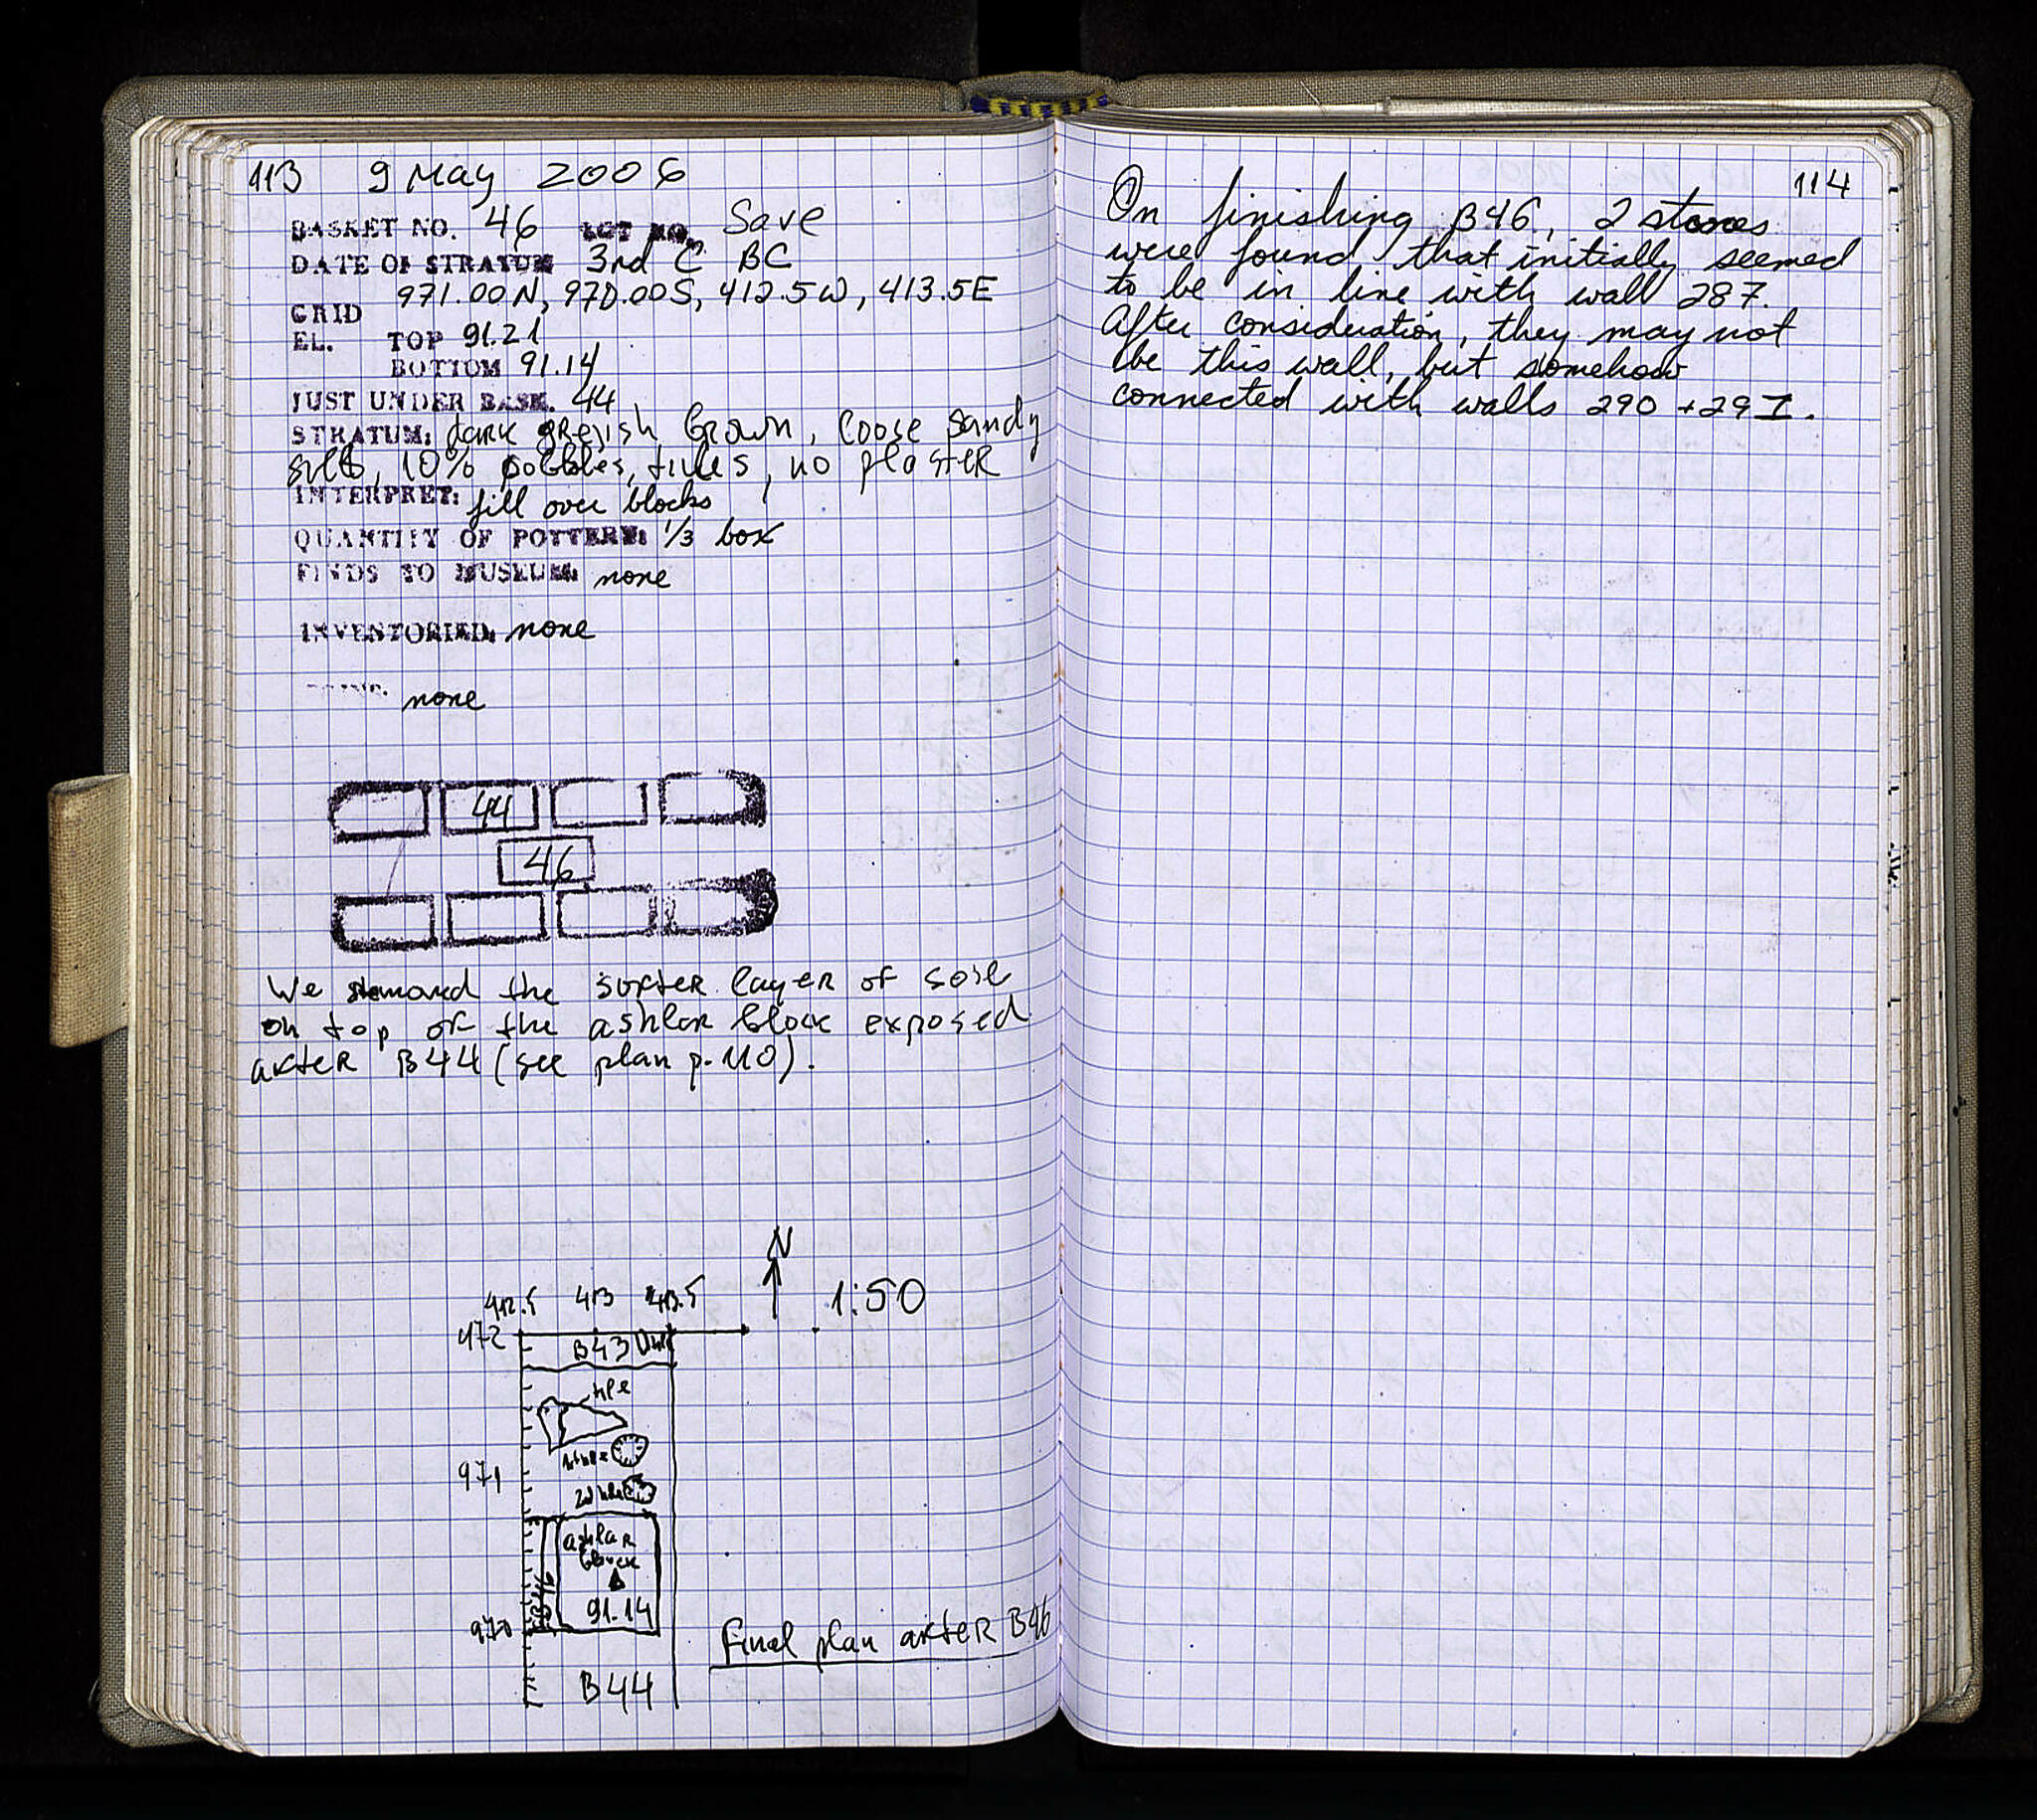 113 9 May 2006
BASKET NO. 46 LOT NO. Save
DATE OF STRATUM 3rd C BC
GRID 971.00N, 970.00S, 412.5W, 413.5E
EL. TOP 91.21
BOTTOM 91.14
JUST UNDER BASK. 44
STRATUM: dark greyish brown, loose sandy
silt, 10% pebbles, tiles, no plaster
INTERPRET: fill over blocks
QUANTITY OF POTTERY: 1/3 box
FINDS TO MUSEUM: none
INVENTORIED: none
none
44
46
We removed the softer layer of soil
on top of the ashlar block exposed
after B44 (see plan p. 110).
N
412.5 413 413.5 1:50
972
B43
tile
971
ashlar
block
91.14
970
B44
Final plan after B46
114
On finishing B46, 2 stones
were found that initially seemed
to be in line with wall 287.
After consideration, they may not
be this wall, but somehow
connected with walls 290 + 291.